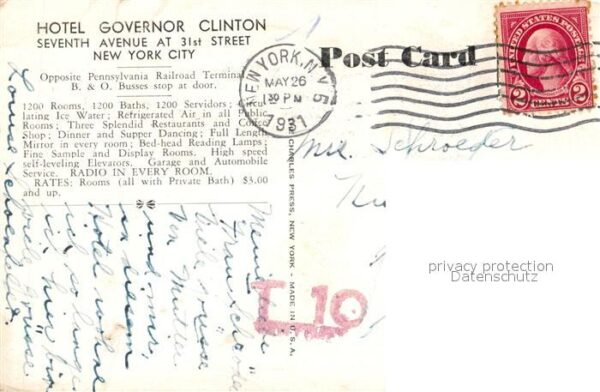 HOTEL GOVERNOR CLINTON
SEVENTH AVENUE AT 31st STREET
NEW YORK CITY
Opposite Pennsylvania Railroad Termina
B. & O. Busses stop at door.
1200 Rooms, 1200 Baths, 1200 Servidors; Circu
lating Ice Water; Refrigerated Air in all Public
Rooms; Three Splendid Restaurants and Coffee
Shop; Dinner and Supper Dancing; Full Length
Mirror in every room; Bed-head Reading Lamps;
Fine Sample and Display Rooms. High speed
self-leveling Elevators. Garage and Automobile
Service. RADIO IN EVERY ROOM.
RATES: Rooms (all with Private Bath) $3.00
and up.
Post Card
NEW YORK, N.Y. 5
MAY 26
1 30 PM
1931
UNITED STATES POSTAGE
2 CENTS 2
Schroeder
CHARLES PRESS, NEW YORK - MADE IN U.S.A.
10
Viele Grüsse
von Mutter
und mir,
in diesem
Hotel wohne
ich so lange
ich hier bin
Viele Grüsse
privacy protection
Datenschutz